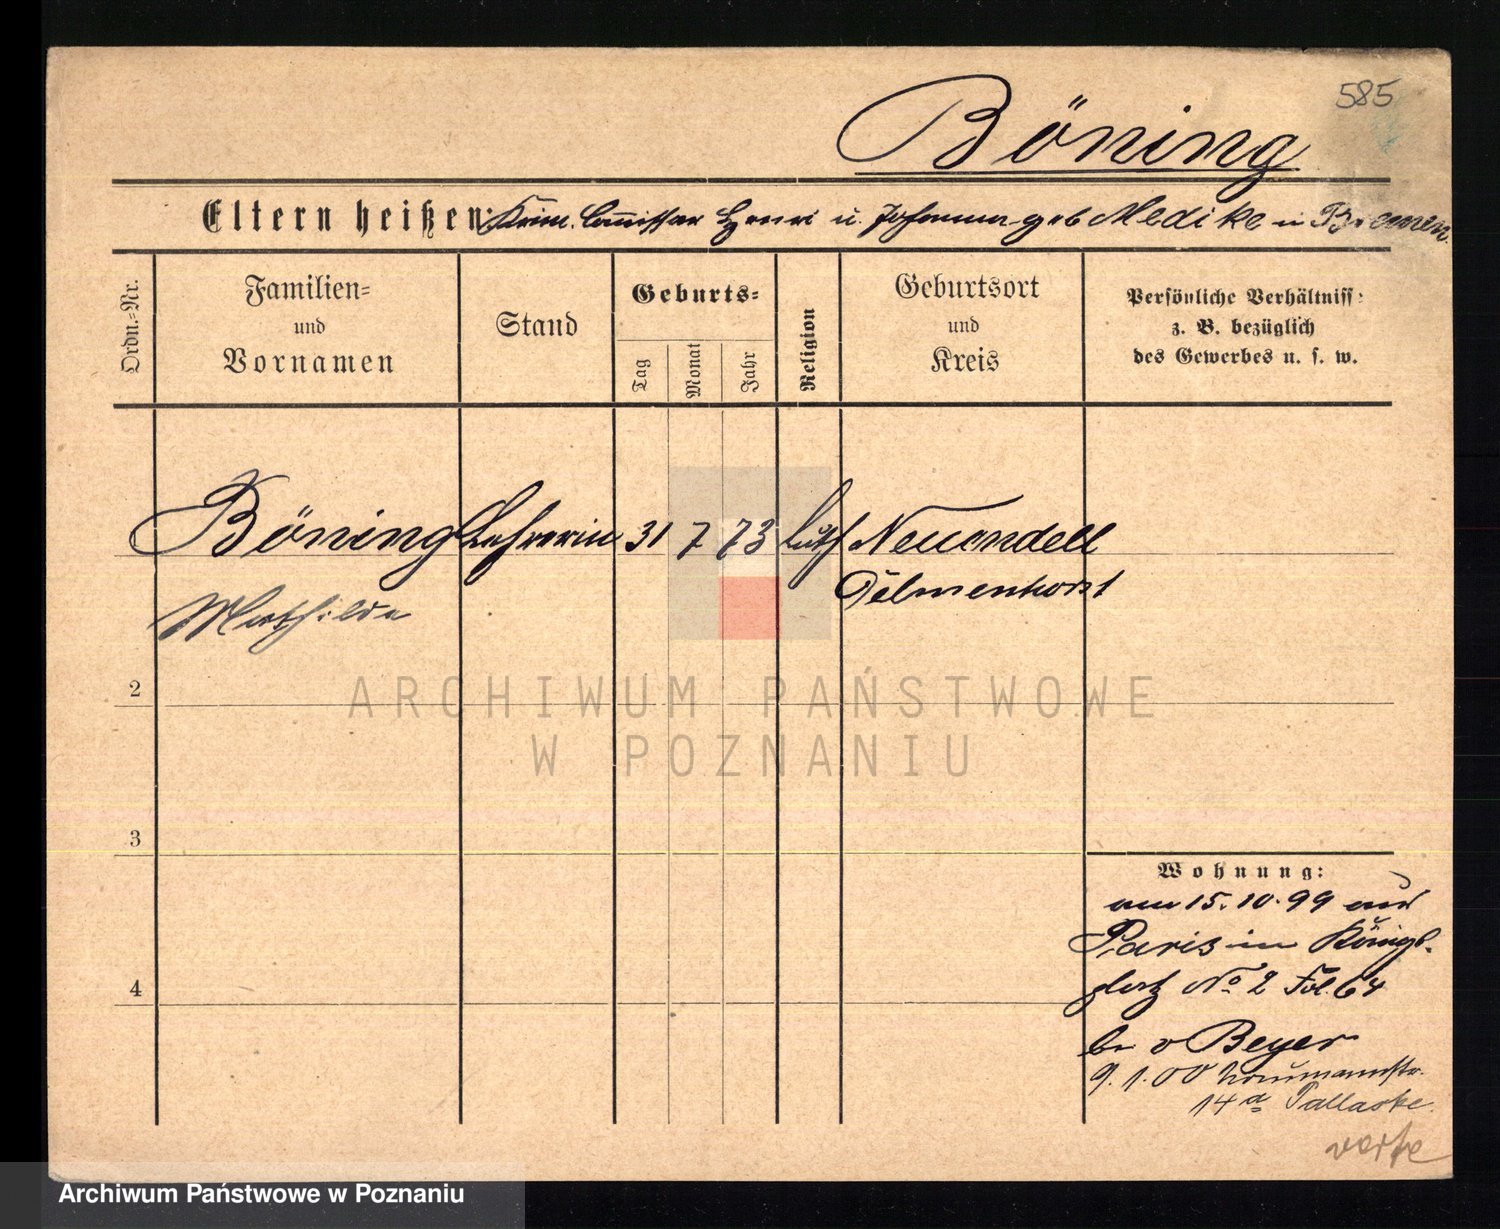 585
Böning
Eltern heißen: Krim. Comissar Henri u. Johanna geb Medike in Bremen.
Ordn.-Nr.
Familien-
und
Vornamen
Stand
Geburts-
Tag
Monat
Jahr
Religion
Geburtsort
und
Kreis
Persönliche Verhältnisse
z. B. bezüglich
des Gewerbes u. s. w.
Böning Lehrerin 31 7 73 luth Neuendell
Mathilde Delmenhorst
2
ARCHIWUM PAŃSTWOWE
W POZNANIU
3
Wohnung:
am 15. 10. 99 aus
Paris in Königs-
platz No 2 Fol. 64
4
bei v Beyer
9. 1. 00 Naumannstr.
14 a Pallaske
Archiwum Państwowe w Poznaniu